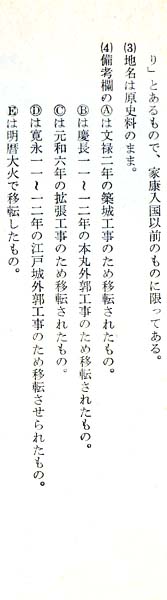 り」とあるもので、家康入国以前のものに限ってある。
(3)地名は原史料のまま。
(4)備考欄のⒶは文禄二年の築城工事のため移転されたもの。
Ⓑは慶長一一〜一二年の本丸外郭工事のため移転されたもの。
Ⓒは元和六年の拡張工事のため移転されたもの。
Ⓓは寛永一一〜一二年の江戸城外郭工事のため移転させられたもの。
Ⓔは明暦大火で移転したもの。